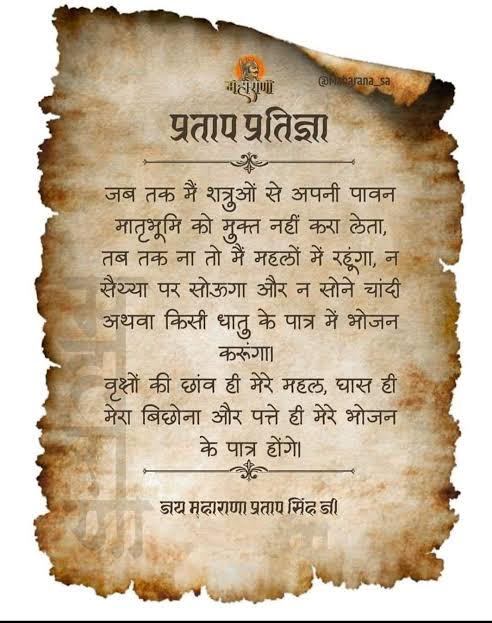 महाराणा
@Maharana_sa
प्रताप प्रतिज्ञा
जब तक मैं शत्रुओं से अपनी पावन
मातृभूमि को मुक्त नहीं करा लेता,
तब तक ना तो मैं महलों में रहूंगा, न
सैय्या पर सोऊगा और न सोने चांदी
अथवा किसी धातु के पात्र में भोजन
करूंगा।
वृक्षों की छांव ही मेरे महल, घास ही
मेरा बिछोना और पत्ते ही मेरे भोजन
के पात्र होंगे।
जय महाराणा प्रताप सिंह जी